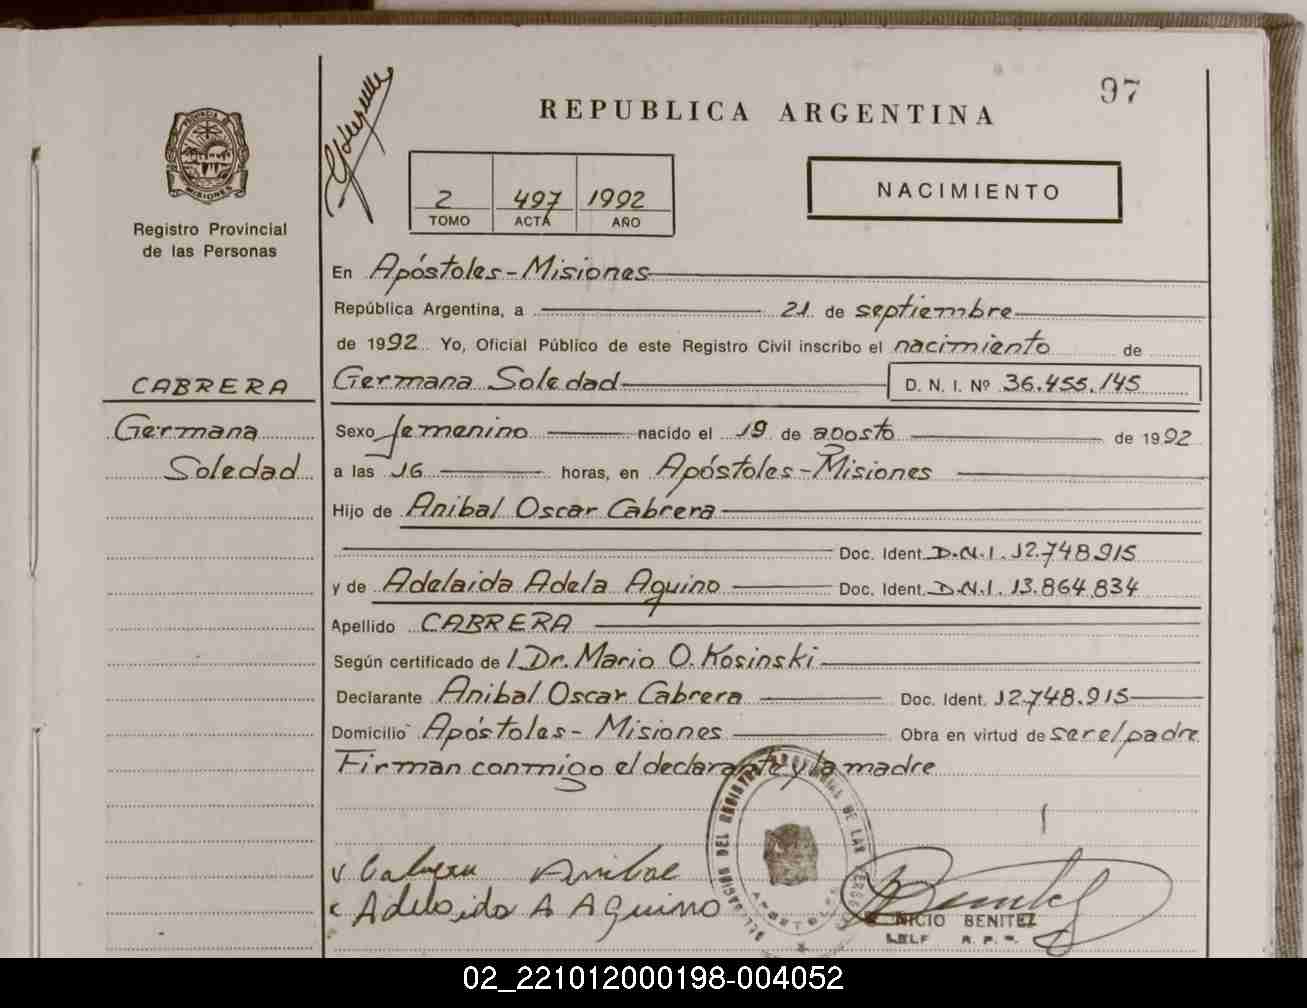 97
REPUBLICA ARGENTINA
PROVINCIA DE
MISIONES
Registro Provincial
de las Personas
2 497 1992
TOMO ACTA AÑO
NACIMIENTO
En Apóstoles-Misiones
República Argentina, a 21 de septiembre
de 1992 Yo, Oficial Público de este Registro Civil inscribo el nacimiento de
CABRERA
Germana Soledad D. N. I. Nº 36.455.145
Germana
Soledad
Sexo femenino nacido el 19 de agosto de 1992
a las 16 horas, en Apóstoles-Misiones
Hijo de Anibal Oscar Cabrera
Doc. Ident. D.N.I. 12.748.915
y de Adelaida Adela Aquino Doc. Ident. D.N.I. 13.864.834
Apellido CABRERA
Según certificado de / Dr. Mario O. Kosinski
Declarante Anibal Oscar Cabrera Doc. Ident. 12.748.915
Domicilio Apóstoles- Misiones Obra en virtud de ser el padre
Firman conmigo el declarante y la madre
DELEGACION DEL REGISTRO PROVINCIAL DE LAS PERSONAS
APOSTOLES
Cabrera Anibal
Adelaida A Aquino
Benitez
NICIO BENITEZ
02_221012000198-004052